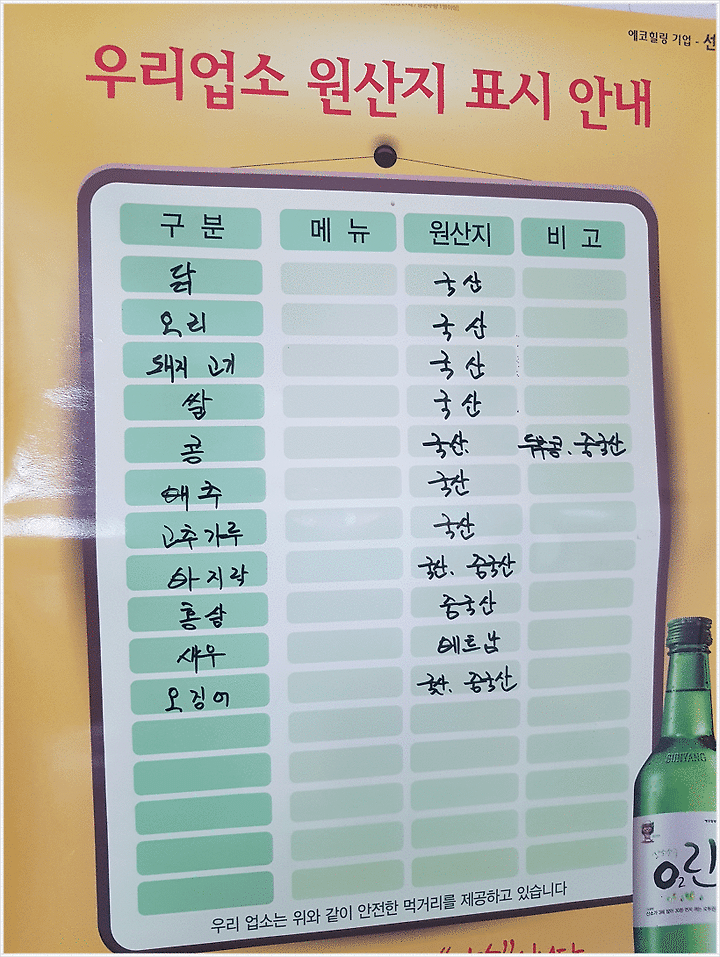 에코힐링 기업 - 선
우리업소 원산지 표시 안내
구 분 메 뉴 원산지 비 고
닭 국산
오리 국산
돼지 고기 국산
쌀 국산
콩 국산. 두유콩. 중국산
배추 국산
고추가루 국산
바지락 국산. 중국산
홍살 중국산
새우 베트남
오징어 국산. 중국산
우리 업소는 위와 같이 안전한 먹거리를 제공하고 있습니다
SUNYANG
O2린